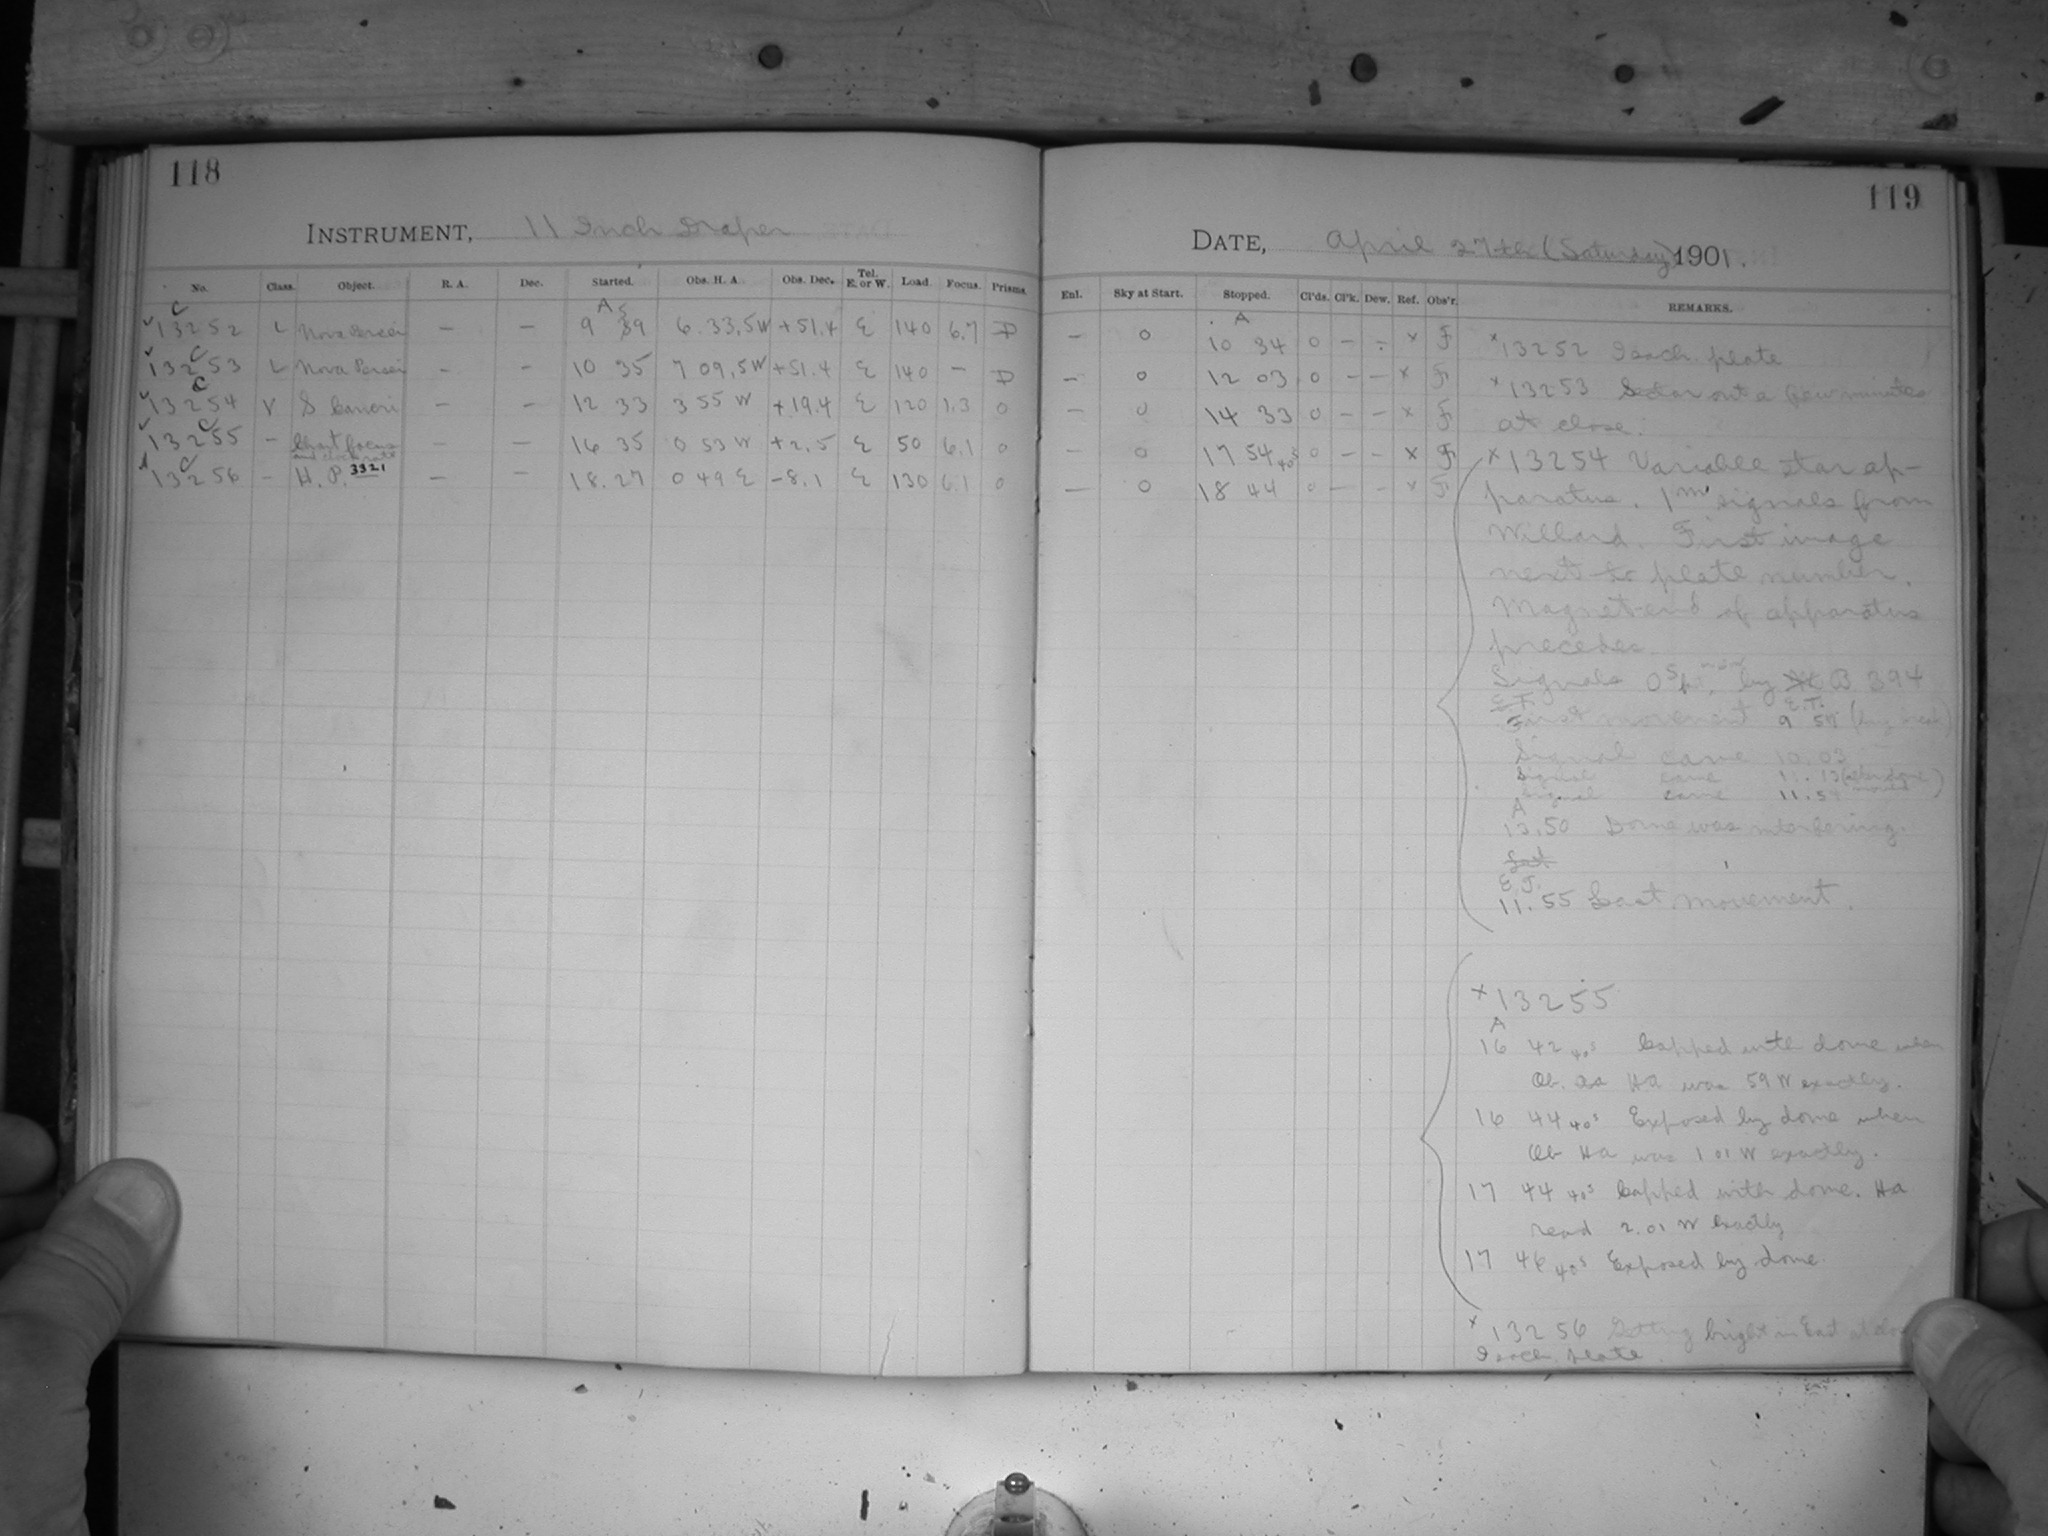 118
INSTRUMENT, 11 Inch Draper
No. Class. Object. R. A. Dec. Started. Obs. H. A. Obs. Dec. Tel. E. or W. Load. Focus. Prisms.
C A S
13252 L Nova Persei — — 9 39 6 33.5 W +51.4 E 140 6.7 D
C
13253 L Nova Persei — — 10 35 7 09.5 W +51.4 E 140 — D
C
13254 V S Cancri — — 12 33 3 55 W +19.4 E 120 1.3 0
C
13255 — focus — — 16 35 0 53 W +2.5 E 50 6.1 0
and clock rate
C
13256 — H. P. 3321 — — 18.27 0 49 E -8.1 E 130 6.1 0
119
DATE, April 27th (Saturday) 1901.
Enl. Sky at Start. Stopped. Cl'ds. Cl'k. Dew. Ref. Obs'r. REMARKS.
A
— 0 10 34 0 — — x F
— 0 12 03 0 — — x F
— 0 14 33 0 — — x F
— 0 17 54 40s 0 — — x F
— 0 18 44 0 — — x F
x 13252 Isoch. plate
x 13253 Star out a few minutes
at close.
x 13254 Variable star ap-
paratus. 1m signals from
Willard. First image
next to plate number.
Magnet end of apparatus
precedes.
Signals 0s by B 394
E.T. E.T.
First movement 9 57
Signal came 10.03
Signal came 11.13
Signal came 11.54
A
13.50 Dome was interfering.
Last
E.T.
11.55 Last movement.
x 13255
A
16 42 40s Capped with dome when
Ob. HA was 59 W exactly.
16 44 40s Exposed by dome when
Ob HA was 1 01 W exactly.
17 44 40s Capped with dome. HA
read 2.01 W exactly
17 46 40s Exposed by dome.
x 13256 Getting bright in East at
Isoch. plate.